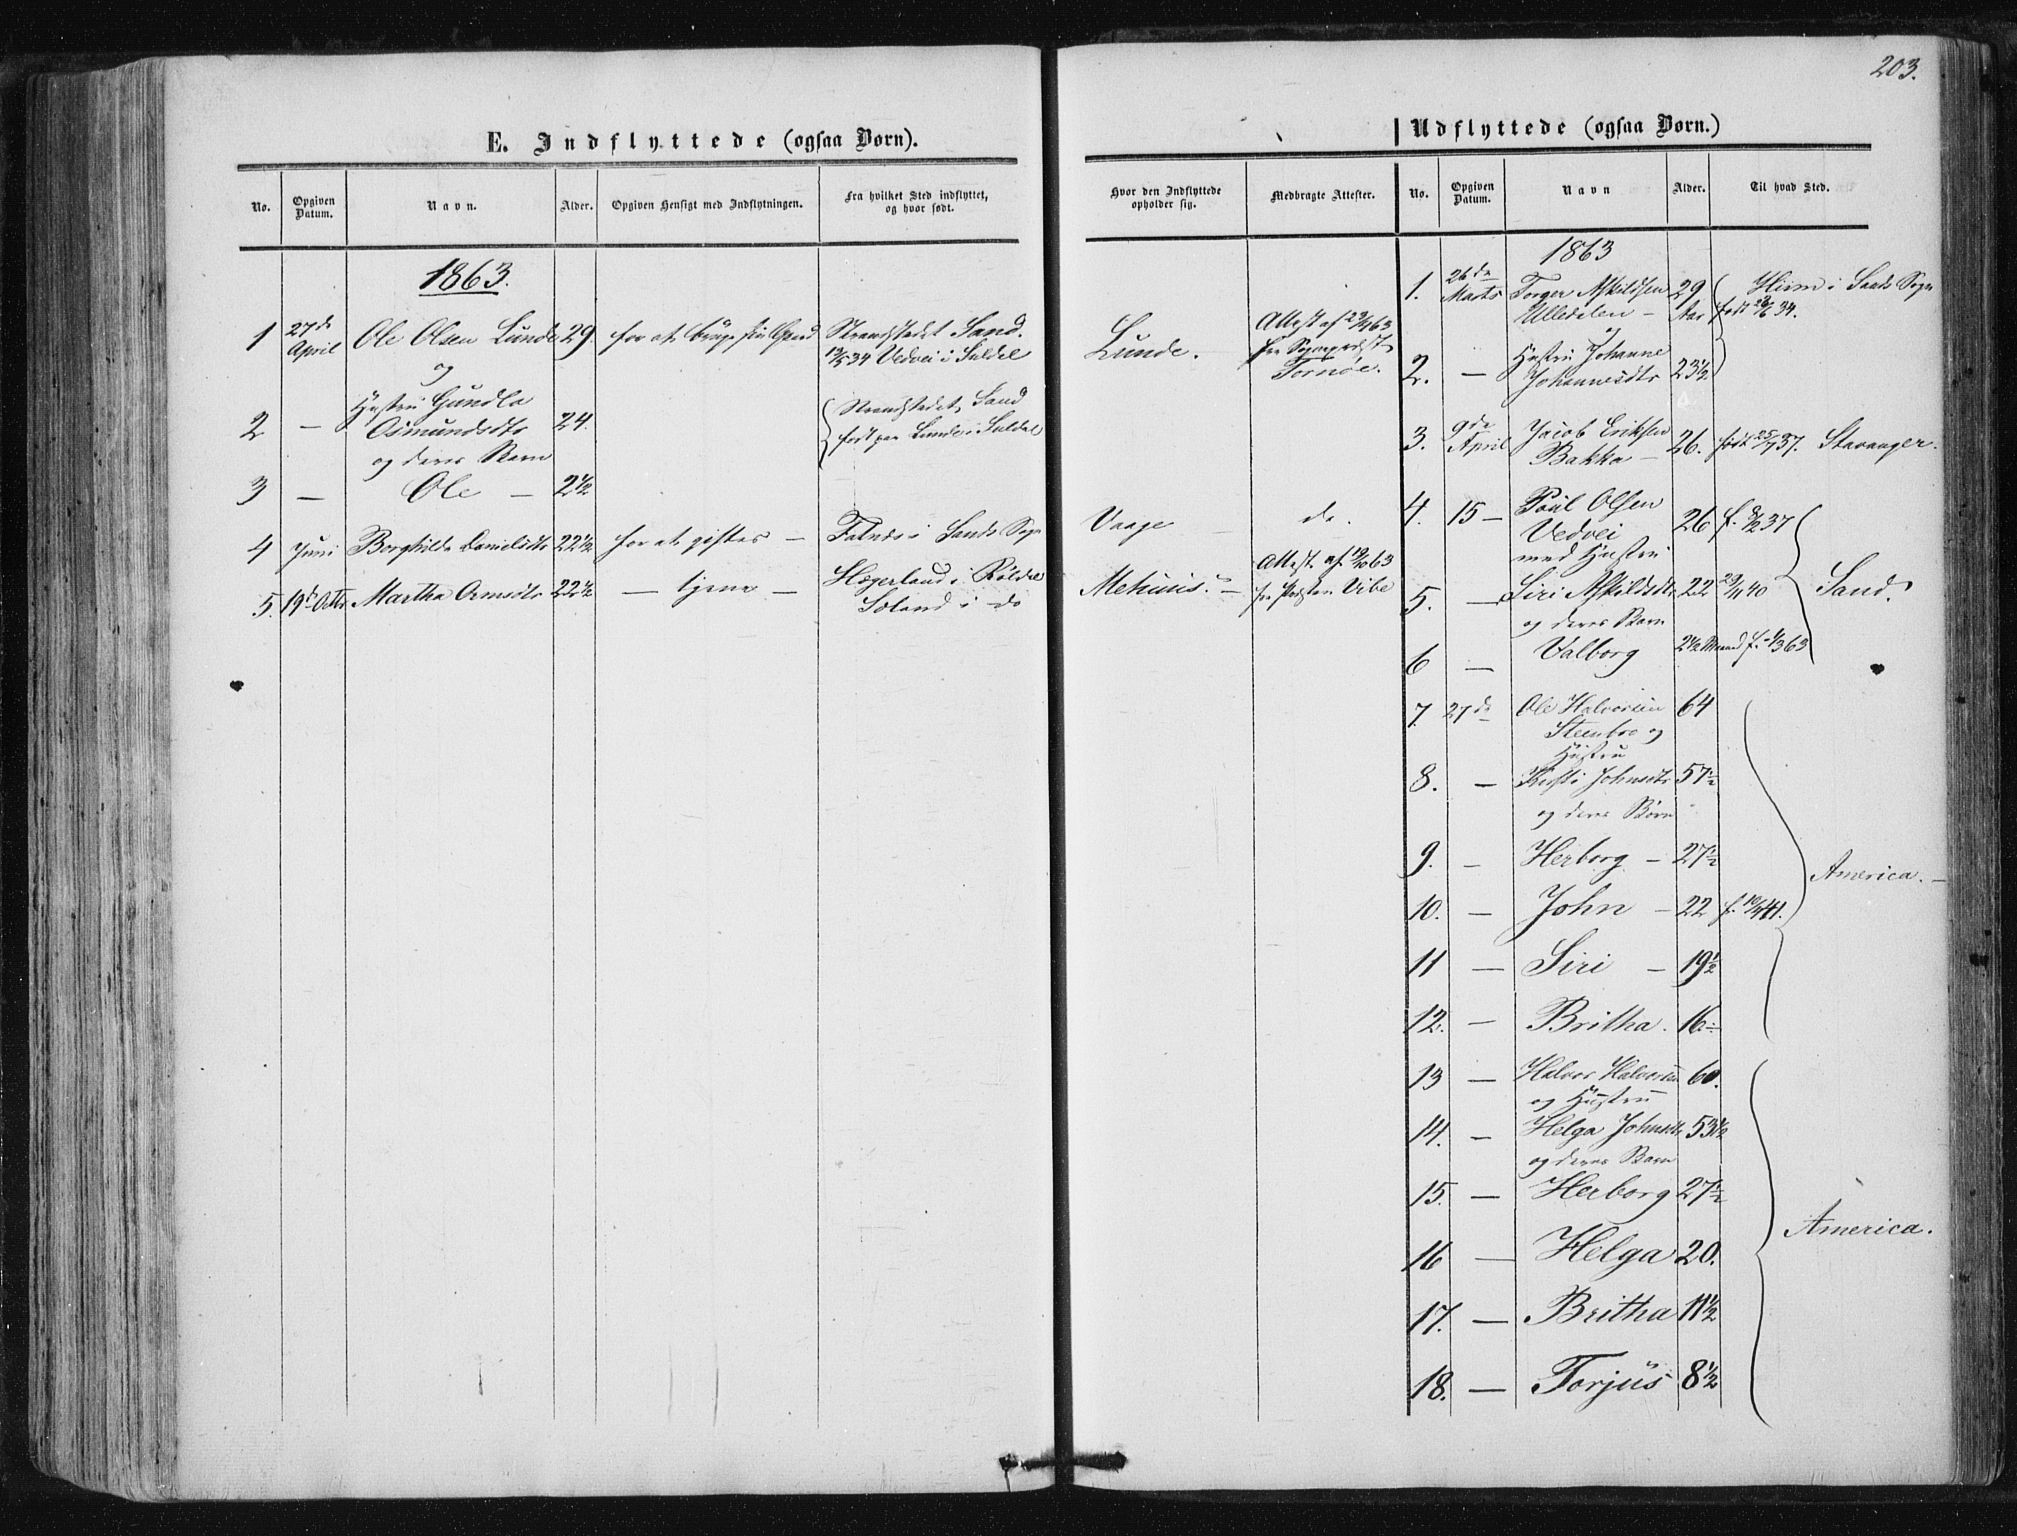 203.
E. Indflyttede (ogsaa Børn).
No. Opgiven Datum. Navn. Alder. Opgiven Hensigt med Indflytningen. Fra hvilket Sted indflyttet, og hvor født.
1863.
1 27de April Ole Olsen Lunde 29. for at bruge sin Gaard Strandstedet Sand.
Vedvei i Suldal
og
2 — Hustru Gundla Strandstedet Sand
Osmundsdtr 24. født paa Lunde i Suldal
og deres Barn
3 — Ole — 2½
4 Juni Borghilde Danielsdtr 22½ for at giftes — Fatnæs i Sands Sogn
5. 19de Octbr Martha Ormsdtr 22½ — tjene — Hægerland i Röldal
Søland i do
Hvor den Indflyttede opholder sig. Medbragte Attester.
Lunde. Attest af 23/4 63
fra Sognepræst
Tornøe.
Vaage — do.
Attest af 19/10 63
Mehuus. — fr Præsten Vibe
Udflyttede (ogsaa Børn.)
No. Opgiven Datum. Navn Alder. Til hvad Sted.
1863
1. 26de Marts Torger Askildsen 29 Aar Hiim i Sands Sogn
Ulledalen — født 34.
og
2. — Hustru Johanne
Johannesdtr 23½
3. 9de April Jacob Eriksen
Bakka — 26. født 25/7 37. Stavanger.
4. 15 — Poul Olsen
Vedvei 26 f. 37
med Hustru
5. — Siri Askildsdtr 22 29/11 40 Sand.
og deres Barn
6 — Valborg 2½ Maaned f. 1/3 63
7. 27de Ole Halvorsen 64
Steenbro og
Hustru
8. — Kirsti Johnsdtr 57½
og deres Børn
9. — Herborg — 27½
America. —
10. — John — 22 f. 41.
11 — Siri — 19½
12. — Britha. 16
13 — Halvor Halvorsen 60.
og Hustru
14. — Helga Johnsdtr 53½
og deres Børn
15. — Herborg 27½
America.
16 — Helga 20.
17. — Britha 11½
18. — Torjus 8½